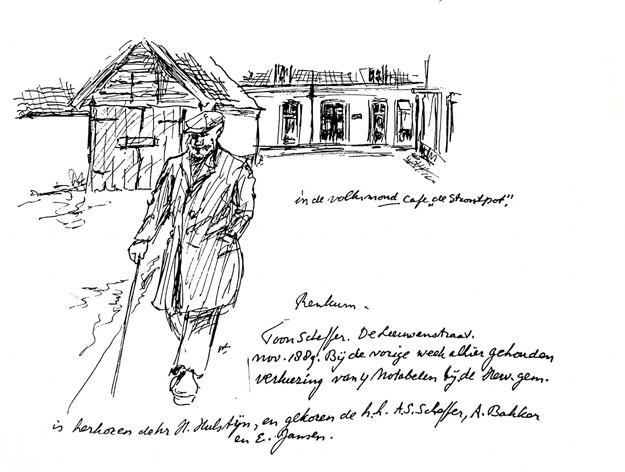 in de volksmond Café „de Strontpot".
Renkum.
Toon Scheffer. De Leeuwenstraat.
nov. 1889. Bij de vorige week alhier gehouden
verkiezing van 4 Notabelen bij de Herv. gem.
is herkozen de hr H. Hulstijn, en gekozen de h.h. A.S. Scheffer, A. Bakker
en E. Jansen.